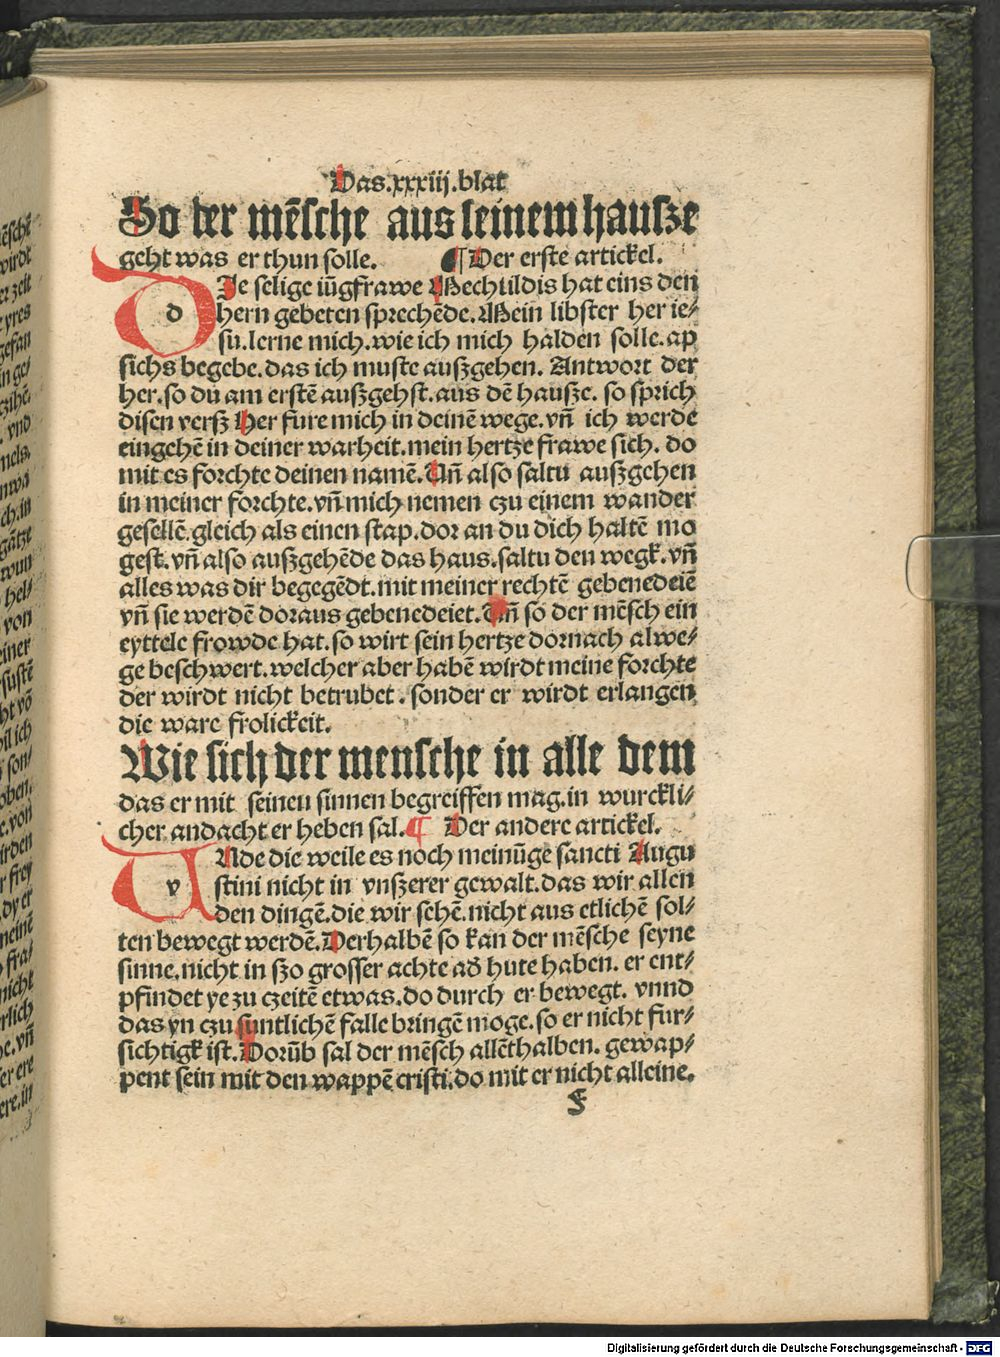 Das.xxxiij.blat
So der mēsche aus seinem hausze
geht was er thun solle. ¶ Der erste artickel.
DIe selige iūgfrawe Mechtildis hat eins den
hern gebeten sprechēde. Mein libster her ie⸗
su. lerne mich. wie ich mich halden solle. ap
sichs begebe. das ich muste auszgehen. Antwort der
her. so du am erstē auszgehst. aus dē hausze. so sprich
disen versz Her fure mich in deinē wege. vñ ich werde
eingehē in deiner warheit. mein hertze frawe sich. do
mit es forchte deinen namē. Vñ also saltu auszgehen
in meiner forchte. vñ mich nemen czu einem wander
gesellē. gleich als einen stap. dor an du dich haltē mo
gest. vñ also auszgehēde das haus. saltu den wegk. vñ
alles was dir begegēdt. mit meiner rechtē gebenedeiē
vñ sie werdē doraus gebenedeiet. Vñ so der mēsch ein
eyttele frowde hat. so wirt sein hertze dornach alwe⸗
ge beschwert. welcher aber habē wirdt meine forchte
der wirdt nicht betrubet. sonder er wirdt erlangen
die ware frolickeit.
Wie sich der mensche in alle dem
das er mit seinen sinnen begreiffen mag. in wurckli⸗
cher andacht er heben sal. ¶ Der andere artickel.
VNde die weile es noch meinūge sancti Augu
stini nicht in vnszerer gewalt. das wir allen
den dingē. die wir sehē. nicht aus etlichē sol⸗
ten bewegt werdē. Derhalbē so kan der mēsche seyne
sinne. nicht in szo grosser achte ad hute haben. er ent⸗
pfindet ye zu czeitē etwas. do durch er bewegt. vnnd
das yn czu suntlichē falle bringē moge. so er nicht fur⸗
sichtigk ist. Dorūb sal der mēsch allēthalben. gewap⸗
pent sein mit den wappē cristi. do mit er nicht alleine.
F
Digitalisierung gefördert durch die Deutsche Forschungsgemeinschaft - DFG